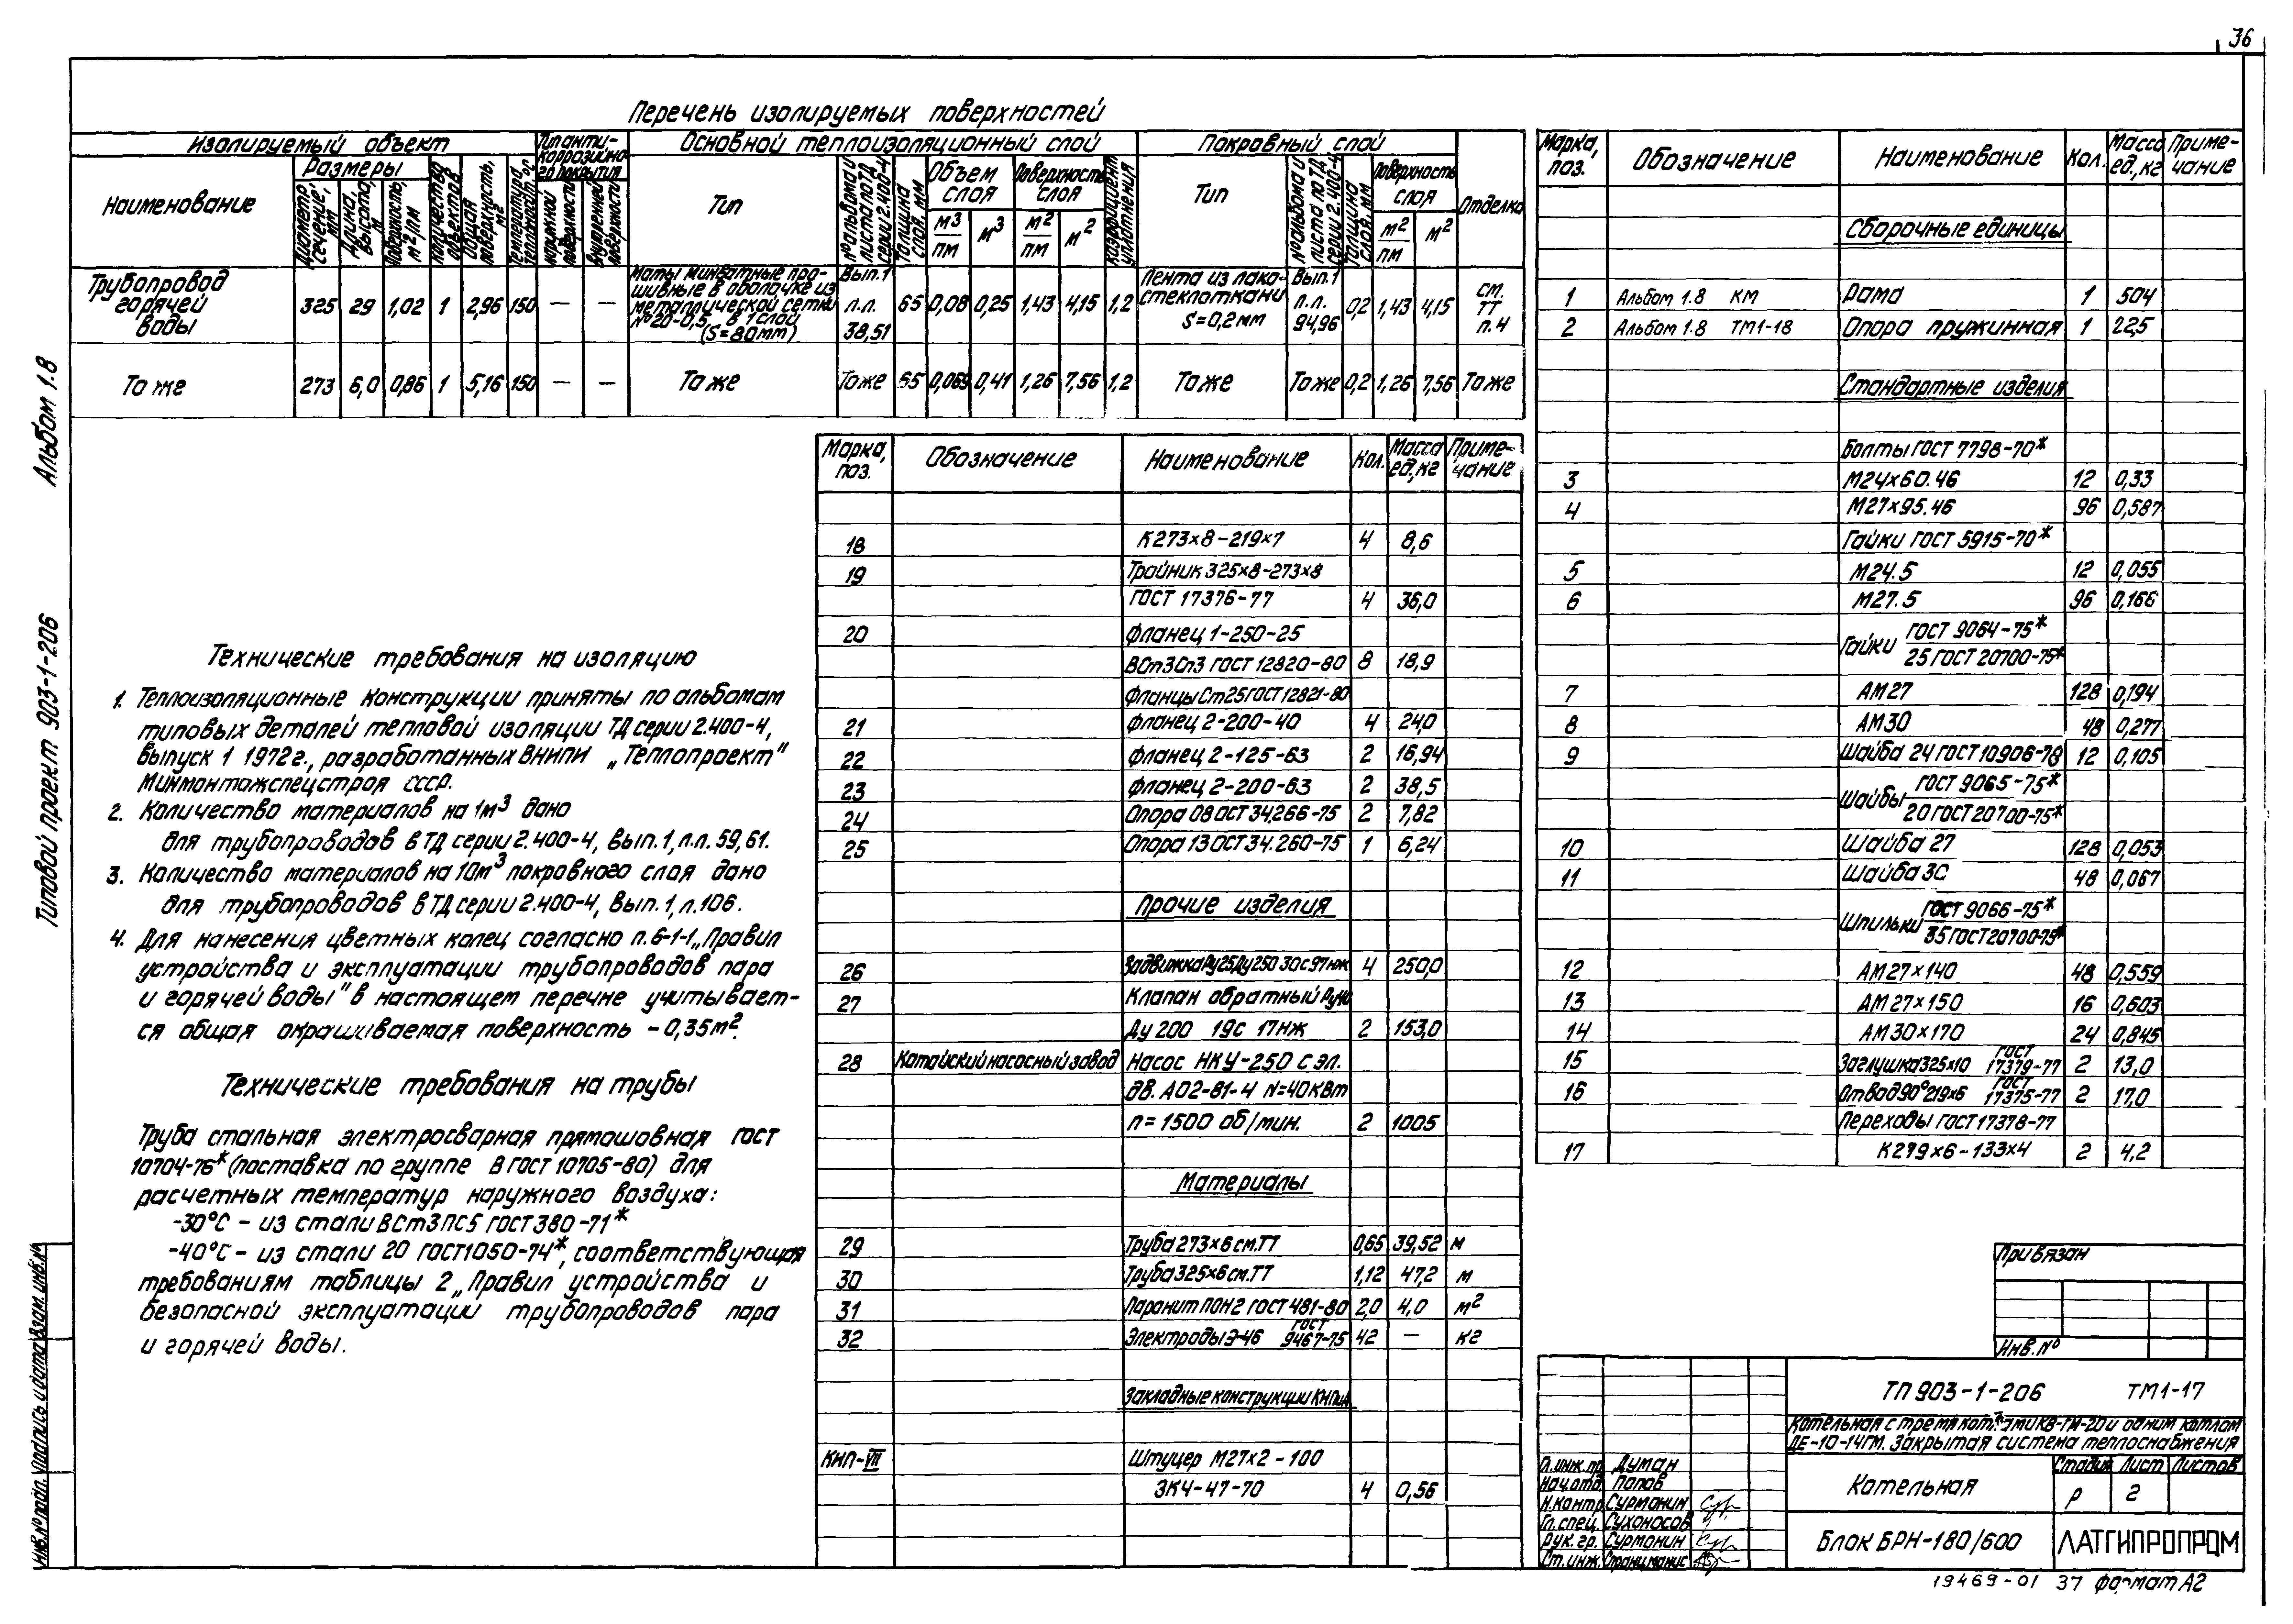 36
Перечень изолируемых поверхностей
Изолируемый объект
Тип анти-коррозийного покрытия
Основной теплоизоляционный слой
Покровный слой
Наименование
Размеры
Диаметр, сечение, мм
Длина, высота, м
Поверхность, м²/пм
Количество объектов
Общая поверхность, м²
Температура теплоносит. °С
наружной поверхности
внутренней поверхности
Тип
№ альбома и листа по ТД серии 2.400-4
Толщина слоя, мм
Объем слоя
м³/пм
м³
Поверхность слоя
м²/пм
м²
уплотнения
Тип
№ альбома и листа по ТД серии 2.400-4
Толщина слоя, мм
Поверхность слоя
м²/пм
м²
Отделка
Трубопровод горячей воды 325 29 1,02 1 2,96 150 — — Маты минватные прошивные в оболочке из металлической сетки №20-0,5 в 1 слой (S=80мм) Вып.1 л.л. 38,51 65 0,08 0,25 1,43 4,15 1,2 Лента из лакостеклоткани S=0,2мм Вып.1 л.л. 94,96 0,2 1,43 4,15 см. ТТ п.4
То же 273 6,0 0,86 1 5,16 150 — — То же То же 65 0,069 0,41 1,26 7,56 1,2 То же То же 0,2 1,26 7,56 То же
Альбом 1.8
Типовой проект 903-1-206
Технические требования на изоляцию
1. Теплоизоляционные конструкции приняты по альбомам
типовых деталей тепловой изоляции ТД серии 2.400-4,
выпуск 1 1972г., разработанных ВНИПИ „Теплопроект"
Минмонтажспецстроя СССР.
2. Количество материалов на 1м³ дано
для трубопроводов в ТД серии 2.400-4, вып.1, л.л. 59,61.
3. Количество материалов на 10м³ покровного слоя дано
для трубопроводов в ТД серии 2.400-4, вып.1, л.106.
4. Для нанесения цветных колец согласно п.6-1-1 „Правил
устройства и эксплуатации трубопроводов пара
и горячей воды" в настоящем перечне учитывает-
ся общая окрашиваемая поверхность - 0,35м².
Технические требования на трубы
Труба стальная электросварная прямошовная ГОСТ
10704-76* (поставка по группе В ГОСТ 10705-80) для
расчетных температур наружного воздуха:
-30°С - из стали ВСт3пс5 ГОСТ 380-71*
-40°С - из стали 20 ГОСТ1050-74*, соответствующая
требованиям таблицы 2 „Правил устройства и
безопасной эксплуатации трубопроводов пара
и горячей воды.
Марка, поз. Обозначение Наименование Кол. Масса ед., кг Примечание
18 К273×8-219×7 4 8,6
19 Тройник 325×8-273×8
ГОСТ 17376-77 4 36,0
20 Фланец 1-250-25
ВСт3Сп3 ГОСТ 12820-80 8 18,9
Фланцы Ст25 ГОСТ 12821-80
21 Фланец 2-200-40 4 24,0
22 Фланец 2-125-63 2 16,94
23 Фланец 2-200-63 2 38,5
24 Опора 08 ОСТ 34.266-75 2 7,82
25 Опора 13 ОСТ 34.260-75 1 6,24
Прочие изделия
26 Задвижка Ру25 Ду250 30с97нж 4 250,0
27 Клапан обратный
Ду 200 19с 17нж 2 153,0
28 Катайский насосный завод Насос НКУ-250 с эл.
дв. АО2-81-4 N=40кВт
n=1500 об/мин. 2 1005
Материалы
29 Труба 273×6 см.ТТ 0,65 39,52 м
30 Труба 325×6 см.ТТ 1,12 47,2 м
31 Паронит ПОН2 ГОСТ 481-80 2,0 4,0 м²
32 Электроды Э-46 ГОСТ 9467-75 42 — кг
Закладные конструкции
КИП-VII Штуцер М27×2-100
ЗК4-47-70 4 0,56
Марка, поз. Обозначение Наименование Кол. Масса ед., кг Примечание
Сборочные единицы
1 Альбом 1.8 КМ Рама 1 504
2 Альбом 1.8 ТМ1-18 Опора пружинная 1 22,5
Стандартные изделия
Болты ГОСТ 7798-70*
3 М24×60.46 12 0,33
4 М27×95.46 96 0,587
Гайки ГОСТ 5915-70*
5 М24.5 12 0,055
6 М27.5 96 0,166
Гайки ГОСТ 9064-75*
25 ГОСТ 20700-75*
7 АМ27 128 0,194
8 АМ30 48 0,277
9 Шайба 24 ГОСТ 10906-78 12 0,105
Шайбы ГОСТ 9065-75*
20 ГОСТ 20700-75*
10 Шайба 27 128 0,053
11 Шайба 30 48 0,067
Шпильки ГОСТ 9066-75*
35 ГОСТ 20700-75*
12 АМ27×140 48 0,559
13 АМ27×150 16 0,603
14 АМ30×170 24 0,845
15 Заглушка 325×10 ГОСТ 17379-77 2 13,0
16 Отвод 90° 219×6 ГОСТ 17375-77 2 17,0
Переходы ГОСТ 17378-77
17 К279×6-133×4 2 4,2
Привязан
Инв.№
ТП 903-1-206 ТМ1-17
Котельная с тремя КВ-ГМ-20 и одним котлом
ДЕ-10-14ГМ. Закрытая система теплоснабжения
Гл.инж.пр. Думан
Нач.отд. Попов
Н.контр. Сурманин
Гл.спец. Сухоносов
Рук.гр. Сурманин
Ст.инж.
Котельная
Стадия Лист Листов
Р 2
Блок БРН-180/600
ЛАТГИПРОПРОМ
Инв.№ подл. Подпись и дата Взам. инв.№
19469-01 37 формат А2